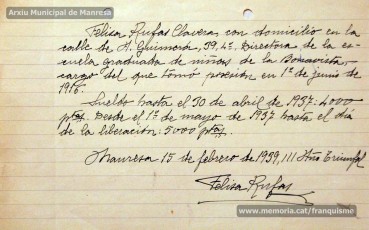 Arxiu Municipal de Manresa
Felisa Rufas Claveras con domicilio en la
calle de A. Guimerá, 39, 4º. Directora de la es-
cuela graduada de niñas de la Bonavista,
cargo del que tomó posesión en 1º de junio de
1916.
Sueldo hasta el 30 de abril de 1937: 4000
ptas. Desde el 1º de mayo de 1937 hasta el día
de la liberación: 5000 ptas.
Manresa 15 de febrero de 1939, III Año Triunfal
Felisa Rufas
www.memoria.cat/franquisme